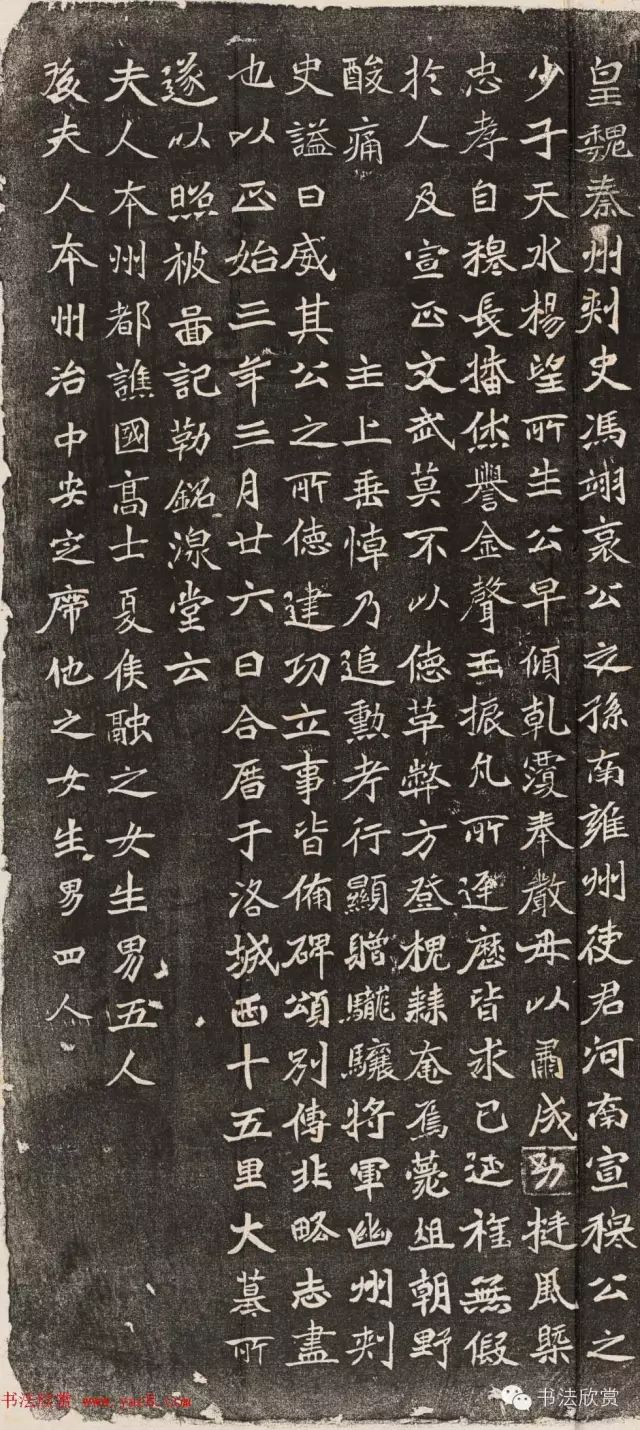 皇魏秦州刾史馮翊哀公之孫南雍州使君河南宣穆公之
少子天水楊望所生公早傾乹覆奉嚴毋以肅成㓜挺風槩
忠孝自穆長播休譽金聲玉振凡所逕歷皆求已延祉無假
扵人及宣正文武莫不以德草弊方登槐棘奄焉薨徂朝野
酸痛　主上垂悼乃追勲考行顯贈驡驤將軍幽州刾
史謚曰威其公之所德建功立事皆俻碑頌別傳非略志盡
也以正始三年三月廿六日合厝于洛城西十五里大墓所
遂以照被畾記勒銘湶堂云
夫人本州都譙國髙士夏侯融之女生男五人
後夫人本州治中安定席他之女生男四人
书法欣赏 www.yac8.com
书法欣赏